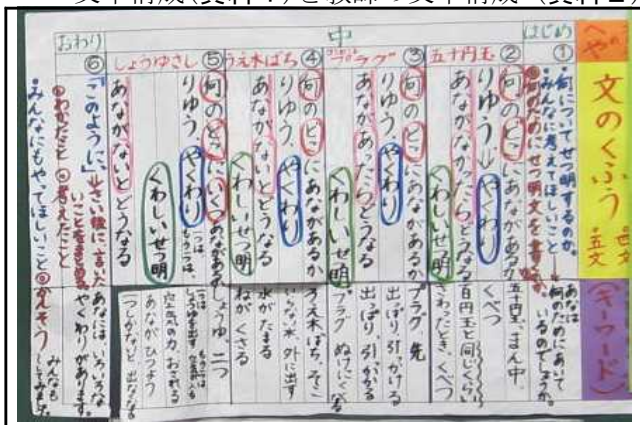 文のくふう
(キーワード)
はじめ
中
おわり
①
・何についてせつ明するのか。
・みんなに考えてほしいこと
あなは
何のためにあいて
いるのでしょうか。
② 五十円玉
何のどこにあながあるか
りゆう、やくわり
あながなかったらどうなる
くわしいせつ明
五十円玉、まん中、
くべつ
百円玉と同じくらい
さわったとき、くべつ
③ プラグ
何のどこにあながあるか
りゆう、やくわり
あながあったらどうなる
くわしいせつ明
プラグ、先
出っぱり、引っかける
出っぱり、引っかかる
プラグ ぬけにくくなる
④ うえ木ばち
何のどこにあながあるか
りゆう、やくわり
あながないとどうなる
くわしいせつ明
うえ木ばち、そこ
いらない水、外に出す
水がたまる
ねがくさる
⑤ しょうゆさし
何のどこにいくつあながあるか
りゆう、やくわり
あながないとどうなる
くわしいせつ明
しょうゆ、二つ
空気の力、おされる
あながひつよう
一つしかないと 出なくなる
⑥
・「このように、」
さい後に、言いたいことをまとめる。
わかったこと
考えたこと
・みんなにもやってほしいこと
かんそう
あなには いろいろな
やくわりがあります。
みんなも